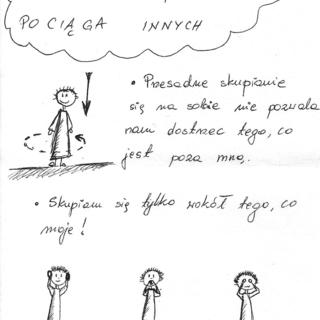 POCIĄGA INNYCH
• Przesadne skupianie
się na sobie nie pozwala
nam dostrzec tego, co
jest poza mną.
• Skupiam się tylko wokół tego, co
moje!